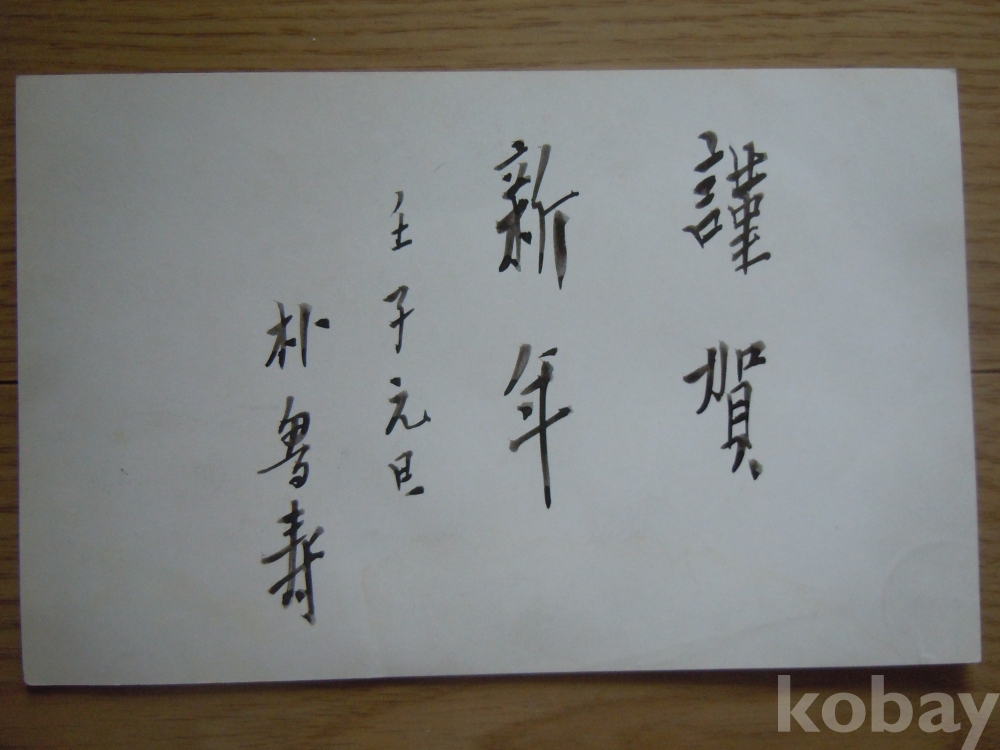 謹賀
新年
壬子元旦
朴魯寿
kobay